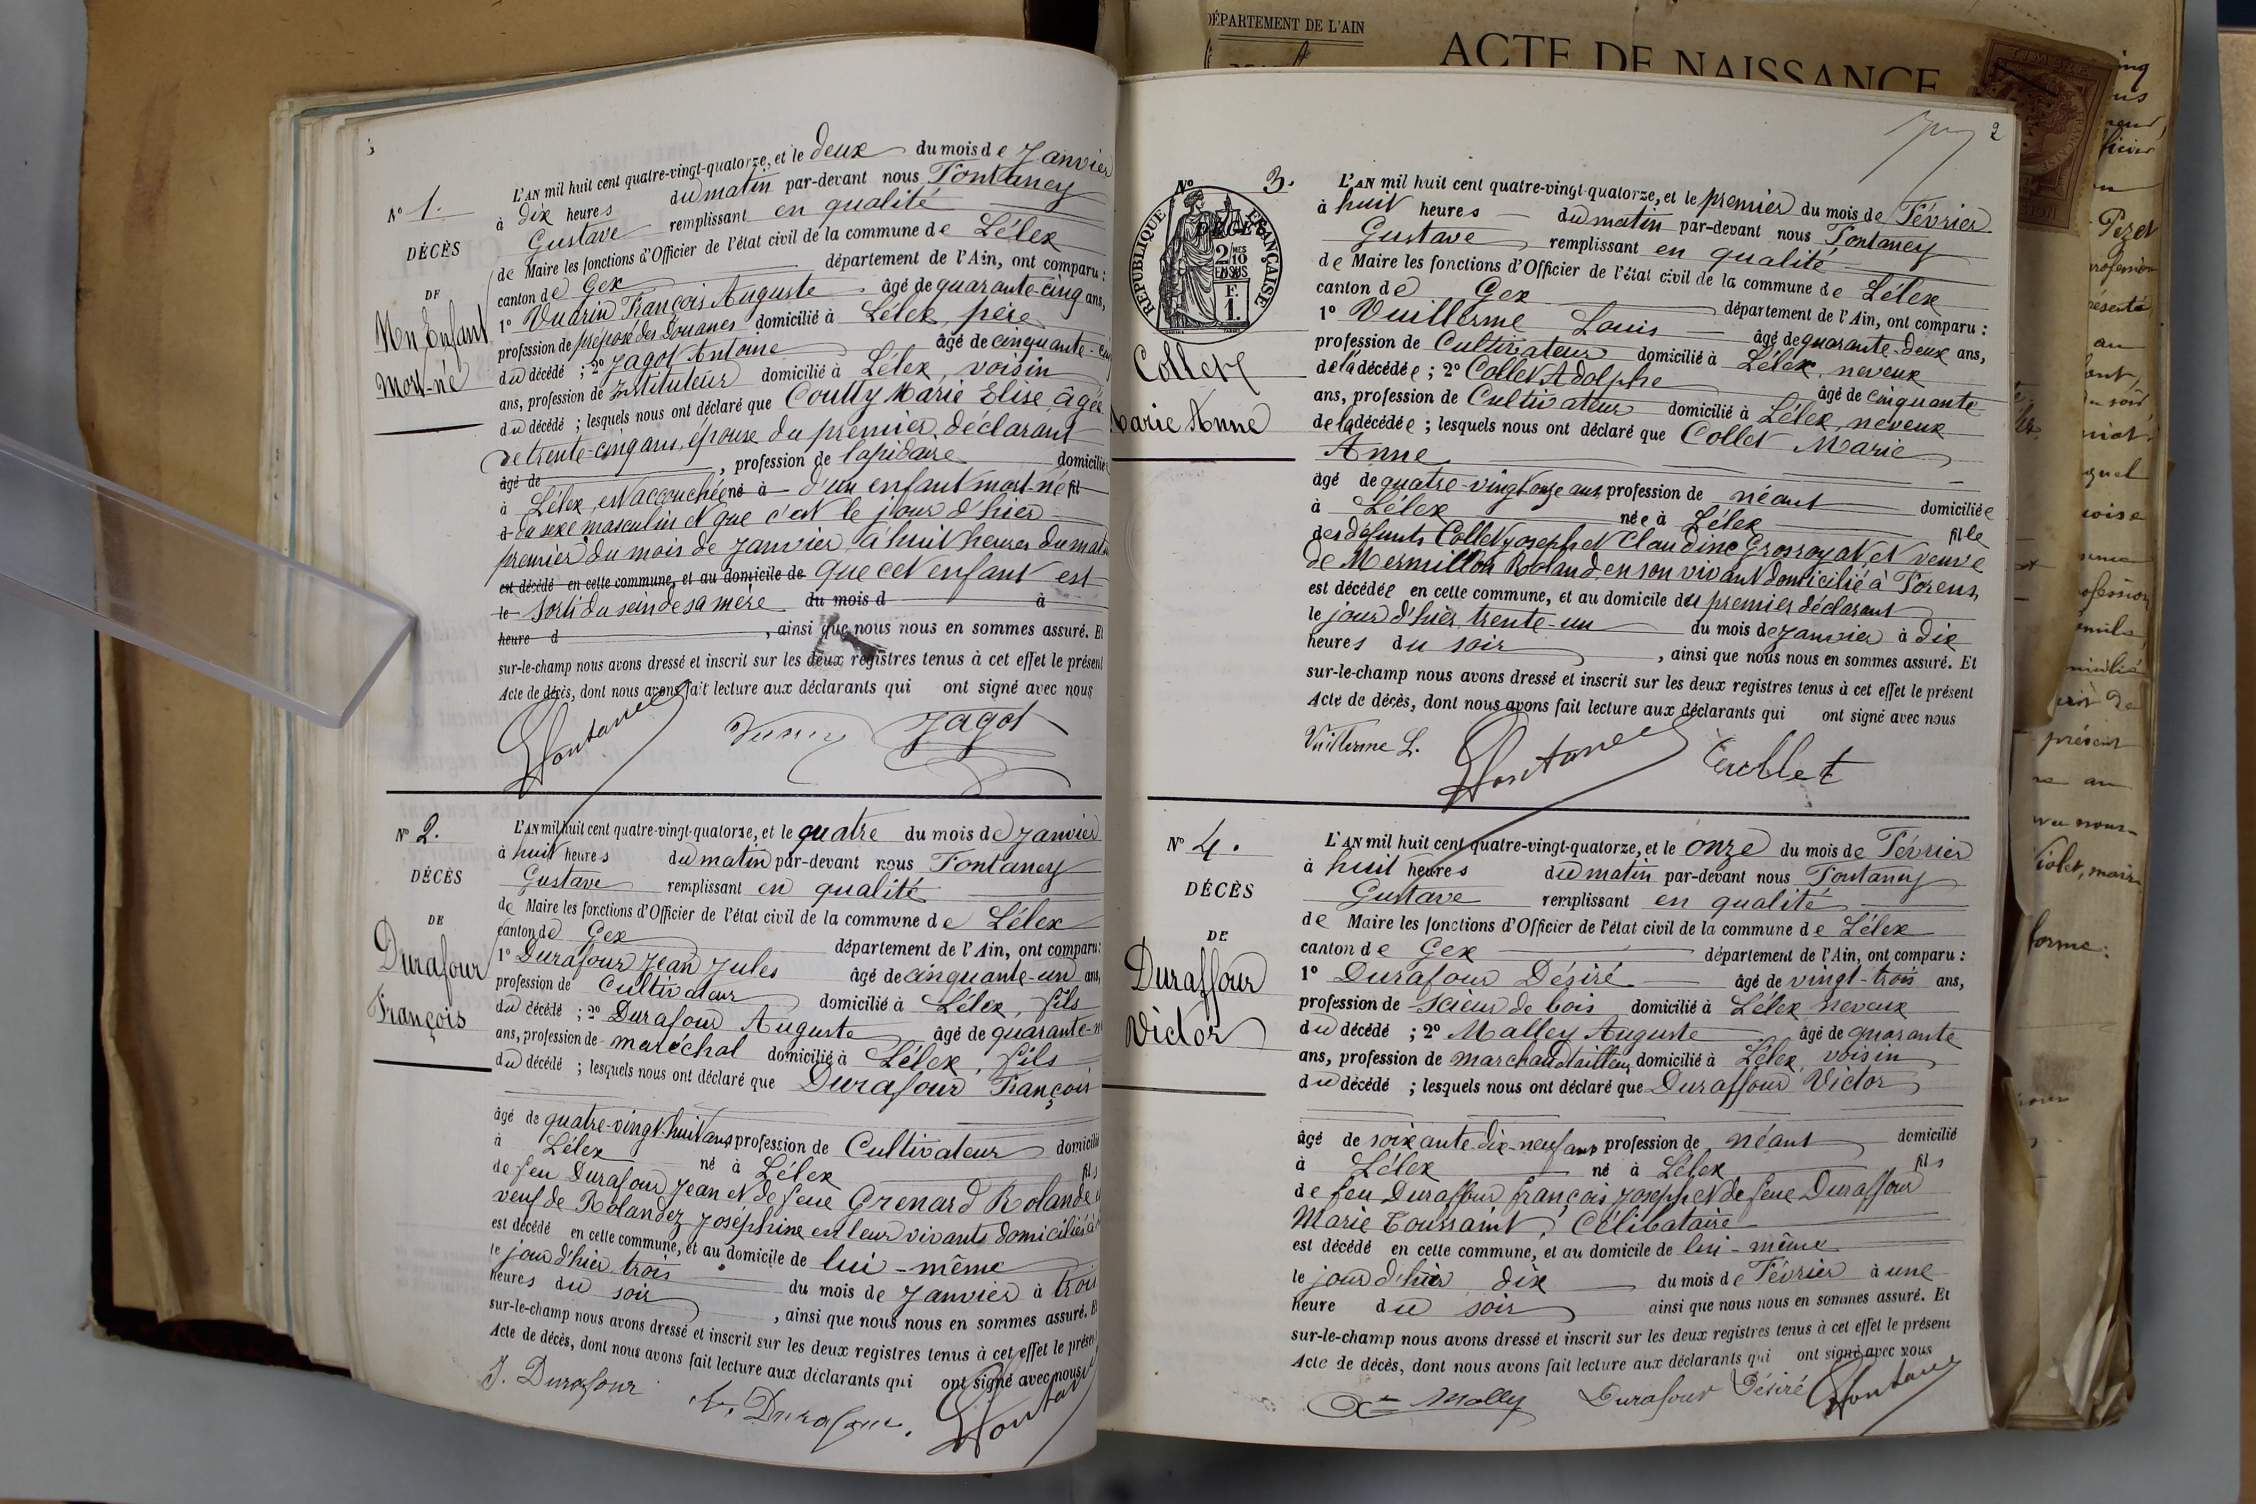 N° 1.
DÉCÈS
DE
Un Enfant
Mort-né
L'AN mil huit cent quatre-vingt-quatorze, et le deux du mois de Janvier
à dix heures du matin par-devant nous Fontaney
Gustave remplissant en qualité
de Maire les fonctions d'Officier de l'état civil de la commune de Lélex
canton de Gex département de l'Ain, ont comparu :
1° Vuarin François Auguste âgé de quarante-cinq ans,
profession de préposé des Douanes domicilié à Lélex, père
du décédé ; 2° Jagot Antoine âgé de cinquante-
ans, profession de Instituteur domicilié à Lélex, voisin
du décédé ; lesquels nous ont déclaré que Coutty Marie Elise, âgée
de trente-cinq ans, épouse du premier déclarant
âgé de , profession de lapidaire domiciliée
à Lélex, est accouchée né à d'un enfant mort-né fil
d du sexe masculin et que c'est le jour d'hier
premier du mois de Janvier, à huit heures du matin
est décédé en cette commune, et au domicile de que cet enfant est
le sorti du sein de sa mère du mois d à
heure d , ainsi que nous nous en sommes assuré. Et
sur-le-champ nous avons dressé et inscrit sur les deux registres tenus à cet effet le présent
Acte de décès, dont nous avons fait lecture aux déclarants qui ont signé avec nous
GFontaney Jagot
N° 2.
DÉCÈS
DE
Durafour
François
L'AN mil huit cent quatre-vingt-quatorze, et le quatre du mois de Janvier
à huit heures du matin par-devant nous Fontaney
Gustave remplissant en qualité
de Maire les fonctions d'Officier de l'état civil de la commune de Lélex
canton de Gex département de l'Ain, ont comparu :
1° Durafour Jean Jules âgé de cinquante-un ans,
profession de Cultivateur domicilié à Lélex, fils
du décédé ; 2° Durafour Auguste âgé de quarante-
ans, profession de maréchal domicilié à Lélex, fils
du décédé ; lesquels nous ont déclaré que Durafour François
âgé de quatre-vingt-huit ans profession de Cultivateur domicilié
à Lélex né à Lélex fils
de feu Durafour Jean et de feue Grenard Rolande
veuf de Rolandez Joséphine en leur vivants domiciliés à
est décédé en cette commune, et au domicile de lui-même
le jour d'hier trois du mois de Janvier à trois
heures du soir , ainsi que nous nous en sommes assuré. Et
sur-le-champ nous avons dressé et inscrit sur les deux registres tenus à cet effet le présent
Acte de décès, dont nous avons fait lecture aux déclarants qui ont signé avec nous
J. Durafour A. Durafour. GFontaney
DÉPARTEMENT DE L'AIN
ACTE DE NAISSANCE
2
N° 3.
RÉPUBLIQUE FRANÇAISE
2/10
EN SUS
F.
1.
Collet
Marie Anne
L'AN mil huit cent quatre-vingt-quatorze, et le premier du mois de Février
à huit heures du matin par-devant nous Fontaney
Gustave remplissant en qualité
de Maire les fonctions d'Officier de l'état civil de la commune de Lélex
canton de Gex département de l'Ain, ont comparu :
1° Vuillerme Louis âgé de quarante-deux ans,
profession de Cultivateur domicilié à Lélex, neveux
de la décédée ; 2° Collet Adolphe âgé de cinquante
ans, profession de Cultivateur domicilié à Lélex, neveux
de la décédée ; lesquels nous ont déclaré que Collet Marie
Anne
âgé de quatre-vingt onze ans profession de néant domiciliée
à Lélex née à Lélex fille
des défunts Collet Joseph et Claudine Grosroyat, et veuve
de Mermillon Roland, en son vivant domicilié à Forens,
est décédée en cette commune, et au domicile du premier déclarant
le jour d'hier trente-un du mois de Janvier à dix
heures du soir , ainsi que nous nous en sommes assuré. Et
sur-le-champ nous avons dressé et inscrit sur les deux registres tenus à cet effet le présent
Acte de décès, dont nous avons fait lecture aux déclarants qui ont signé avec nous
Vuillerme L. GFontaney Collet
N° 4.
DÉCÈS
DE
Duraffour
Victor
L'AN mil huit cent quatre-vingt-quatorze, et le onze du mois de Février
à huit heures du matin par-devant nous Fontaney
Gustave remplissant en qualité
de Maire les fonctions d'Officier de l'état civil de la commune de Lélex
canton de Gex département de l'Ain, ont comparu :
1° Durafour Désiré âgé de vingt-trois ans,
profession de scieur de bois domicilié à Lélex neveux
du décédé ; 2° Malley Auguste âgé de quarante
ans, profession de marchand tailleur domicilié à Lélex, voisin
du décédé ; lesquels nous ont déclaré que Duraffour Victor
âgé de soixante-dix-neuf ans profession de néant domicilié
à Lélex né à Lélex fils
de feu Duraffour françois Joseph et de feue Duraffour
Marie Toussaint, Célibataire
est décédé en cette commune, et au domicile de lui-même
le jour d'hier dix du mois de Février à une
heure du soir ainsi que nous nous en sommes assuré. Et
sur-le-champ nous avons dressé et inscrit sur les deux registres tenus à cet effet le présent
Acte de décès, dont nous avons fait lecture aux déclarants qui ont signé avec nous
Molly Durafour Désiré GFontaney